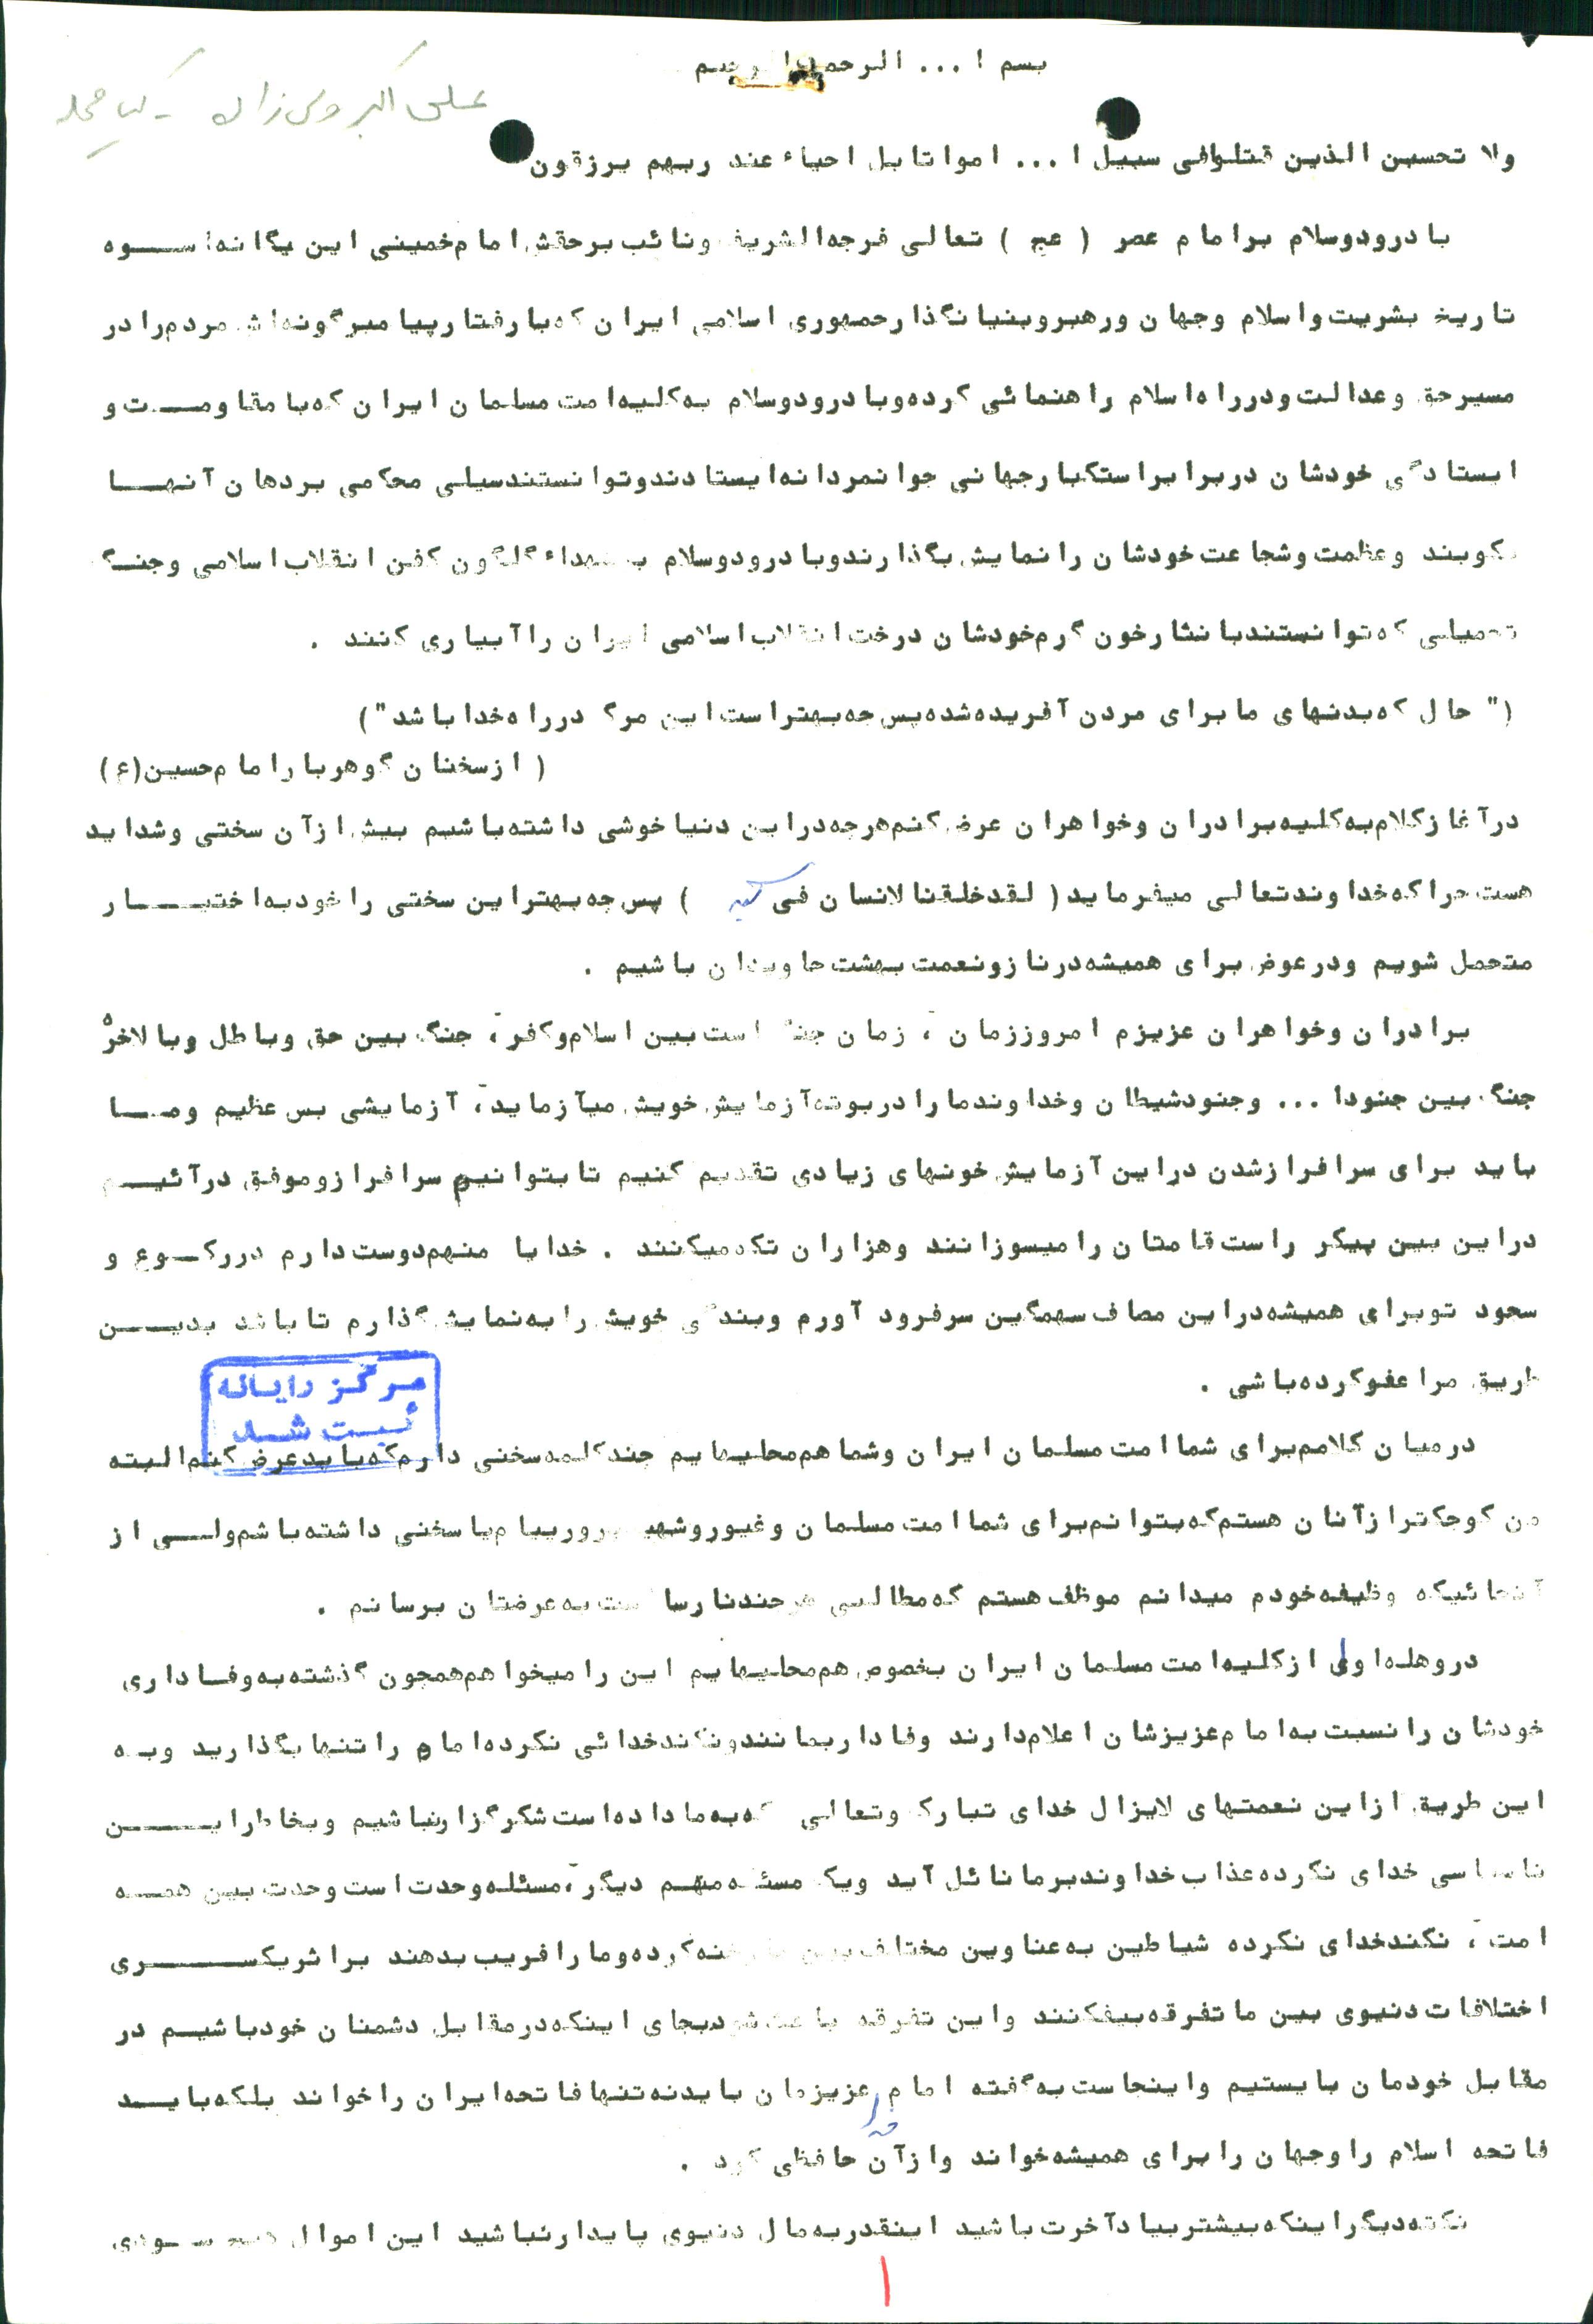 بسم ا ... الرحمن الرحیم
علی اکبر
ولا تحسبن الذین قتلوافی سبیل ا ... امواتا بل احیاء عند ربهم یرزقون
با درودوسلام برامام عصر ( عج ) تعالی فرجه الشریف ونائب برحقش امام خمینی این یگانه اسوه
تاریخ بشریت واسلام وجهان ورهبروبنیانگذارجمهوری اسلامی ایران که با رفتارپیامبرگونه اش مردم را در
مسیرحق وعدالت ودرراه اسلام راهنمائی کرده وبا درودوسلام به کلیه امت مسلمان ایران که با مقاومت و
ایستادگی خودشان دربرابراستکبارجهانی جوانمردانه ایستادندوتوانستندسیلی محکمی بردهان آنها
بکوبند وعظمت وشجاعت خودشان رانمایش بگذارندوبا درودوسلام به شهداء گلگون کفن انقلاب اسلامی وجنگ
تحمیلی که توانستندبا نثارخون گرم خودشان درخت انقلاب اسلامی ایران را آبیاری کنند .
(" حال که بدنهای ما برای مردن آفریده شده پس چه بهتراست این مرگ درراه خدا باشد")
( ازسخنان گوهربارامام حسین (ع)
درآغازکلام به کلیه برادران وخواهران عرض کنم هرچه دراین دنیا خوشی داشته باشیم بیش ازآن سختی وشداید
هست چراکه خداوندتعالی میفرماید( لقدخلقنا لانسان فی کبد ) پس چه بهتراین سختی راخودبه اختیار
متحمل شویم ودرعوض برای همیشه درنازونعمت بهشت جاویدان باشیم .
برادران وخواهران عزیزم امروززمان ، زمان جنگ است بین اسلام وکفر، جنگ بین حق وباطل وبالاخره
جنگ بین جنودا ... وجنودشیطان وخداوندما رادربوته آزمایش خویش میآزماید، آزمایشی بس عظیم وما
باید برای سرافرازشدن دراین آزمایش خونهای زیادی تقدیم کنیم تا بتوانیم سرافرازوموفق درآئیم
دراین بین پیکر راست قامتان رامیسوزانند وهزاران تکه میکنند . خدایا منهم دوست دارم دررکوع و
سجود توبرای همیشه دراین مصاف سهمگین سرفرود آورم وبندگی خویش رابه نمایش گذارم تا باشد بدین
طریق مراعفوکرده باشی .
مرکز رایانه
ثبت شد
درمیان کلامم برای شما امت مسلمان ایران وشما هم محلیهایم چندکلمه سخنی دارم که بایدعرض کنم البته
من کوچکترازآنان هستم که بتوانم برای شما امت مسلمان وغیوروشهید پرورپیام یا سخنی داشته باشم ولی از
آنجائیکه وظیفه خودم میدانم موظف هستم که مطالبی هرچندنارسا است به عرضتان برسانم .
دروهله اولی ازکلیه امت مسلمان ایران بخصوص هم محلیهایم این رامیخواهم همچون گذشته به وفاداری
خودشان رانسبت به امام عزیزشان اعلام دارند وفاداربمانندونکندخدائی نکرده امام راتنها بگذارید وبه
این طریق ازاین نعمتهای لایزال خدای تبارک وتعالی که به ما داده است شکرگزارنباشیم وبخاطراین
ناسپاسی خدای نکرده عذاب خداوندبرما نائل آید ویک مسئله مهم دیگر،مسئله وحدت است وحدت بین همه
امت ، نکندخدای نکرده شیاطین به عناوین مختلف بین ما رخنه کرده ومارافریب بدهند براثریکسری
اختلافات دنیوی بین ما تفرقه بیفکنند واین تفرقه باعث شودبجای اینکه درمقابل دشمنان خودباشیم در
مقابل خودمان بایستیم واینجاست به گفته امام عزیزمان بایدنه تنها فاتحه ایران راخواند بلکه باید
فاتحه اسلام راوجهان رابرای همیشه خواند وازآن خداحافظی کرد .
نکته دیگراینکه بیشتربیاد آخرت باشید اینقدربه مال دنیوی پایدارنباشید این اموال هیچ سودی
۱